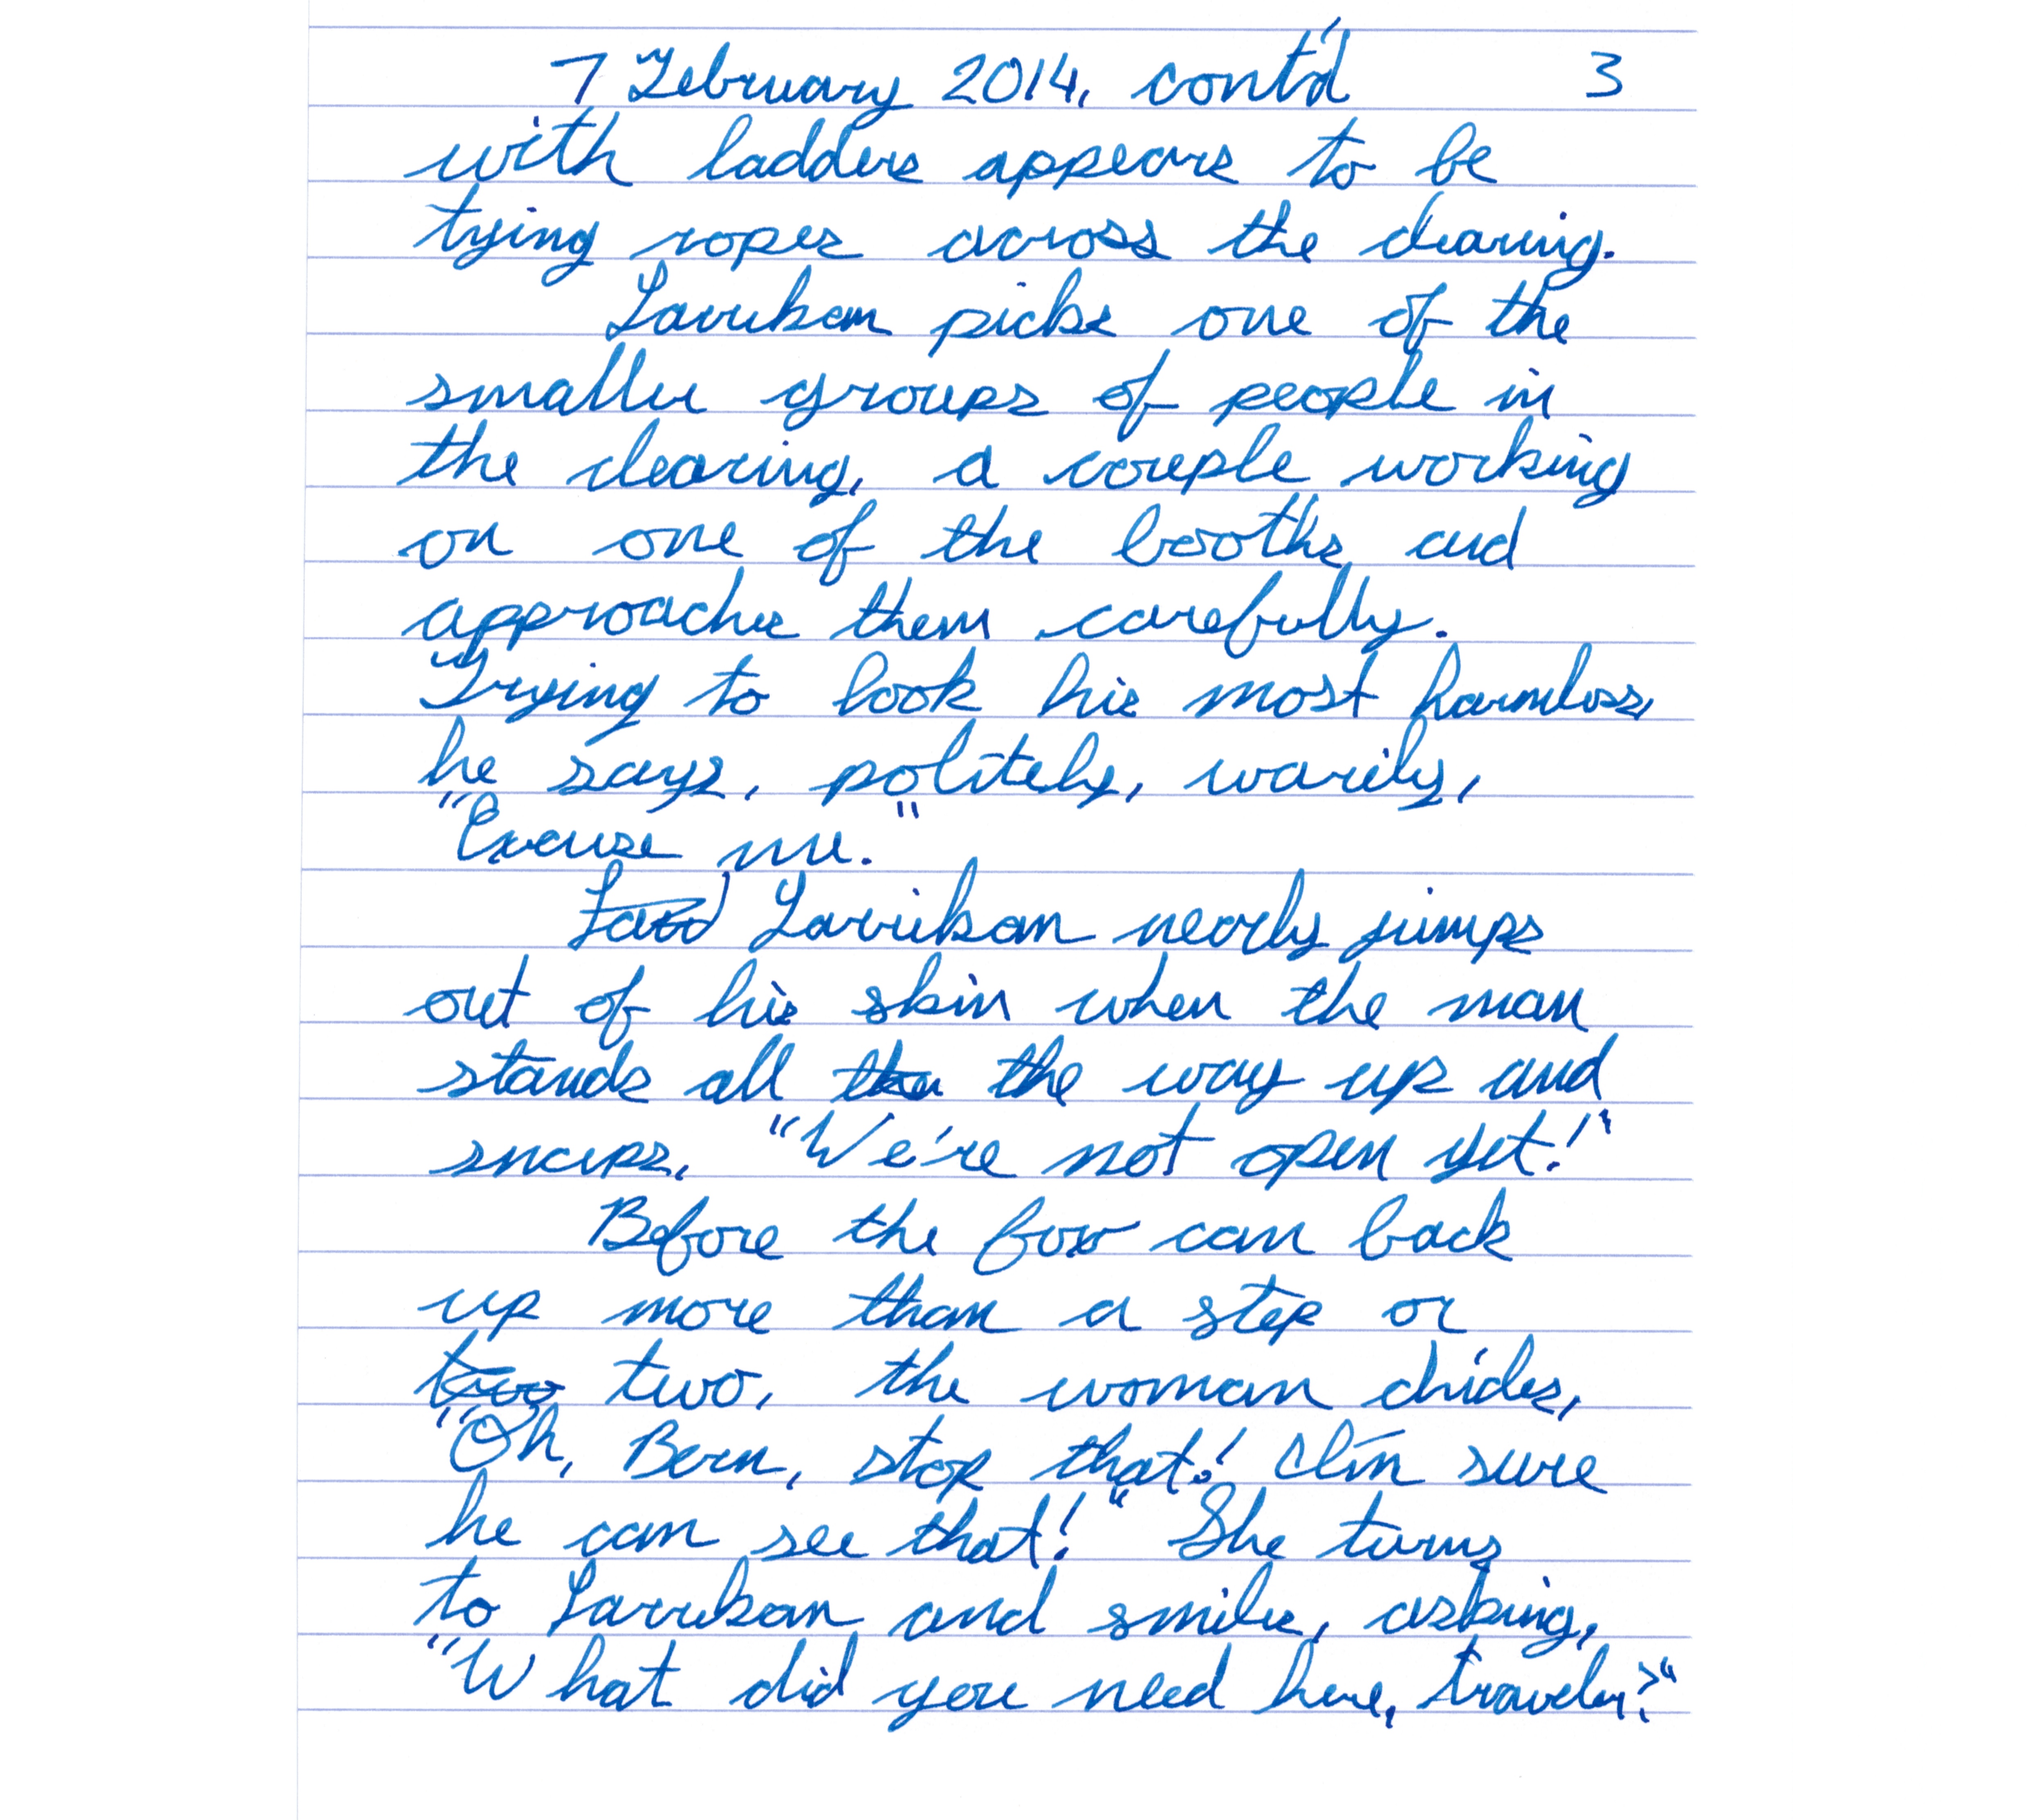 7 February 2014, cont'd 3
with ladders appears to be
tying ropes across the clearing.
Lavrikan picks one of the
smaller groups of people in
the clearing, a couple working
on one of the booths and
approaches them carefully.
Trying to look his most harmless,
he says, politely, warily,
"Excuse me."
Lavrikan nearly jumps
out of his skin when the man
stands all the way up and
snaps, "We're not open yet!"
Before the fox can back
up more than a step or
two two, the woman chides,
"Oh, Bern, stop that! I'm sure
he can see that!" She turns
to Lavrikan and smiles, asking,
"What did you need here, traveler?"